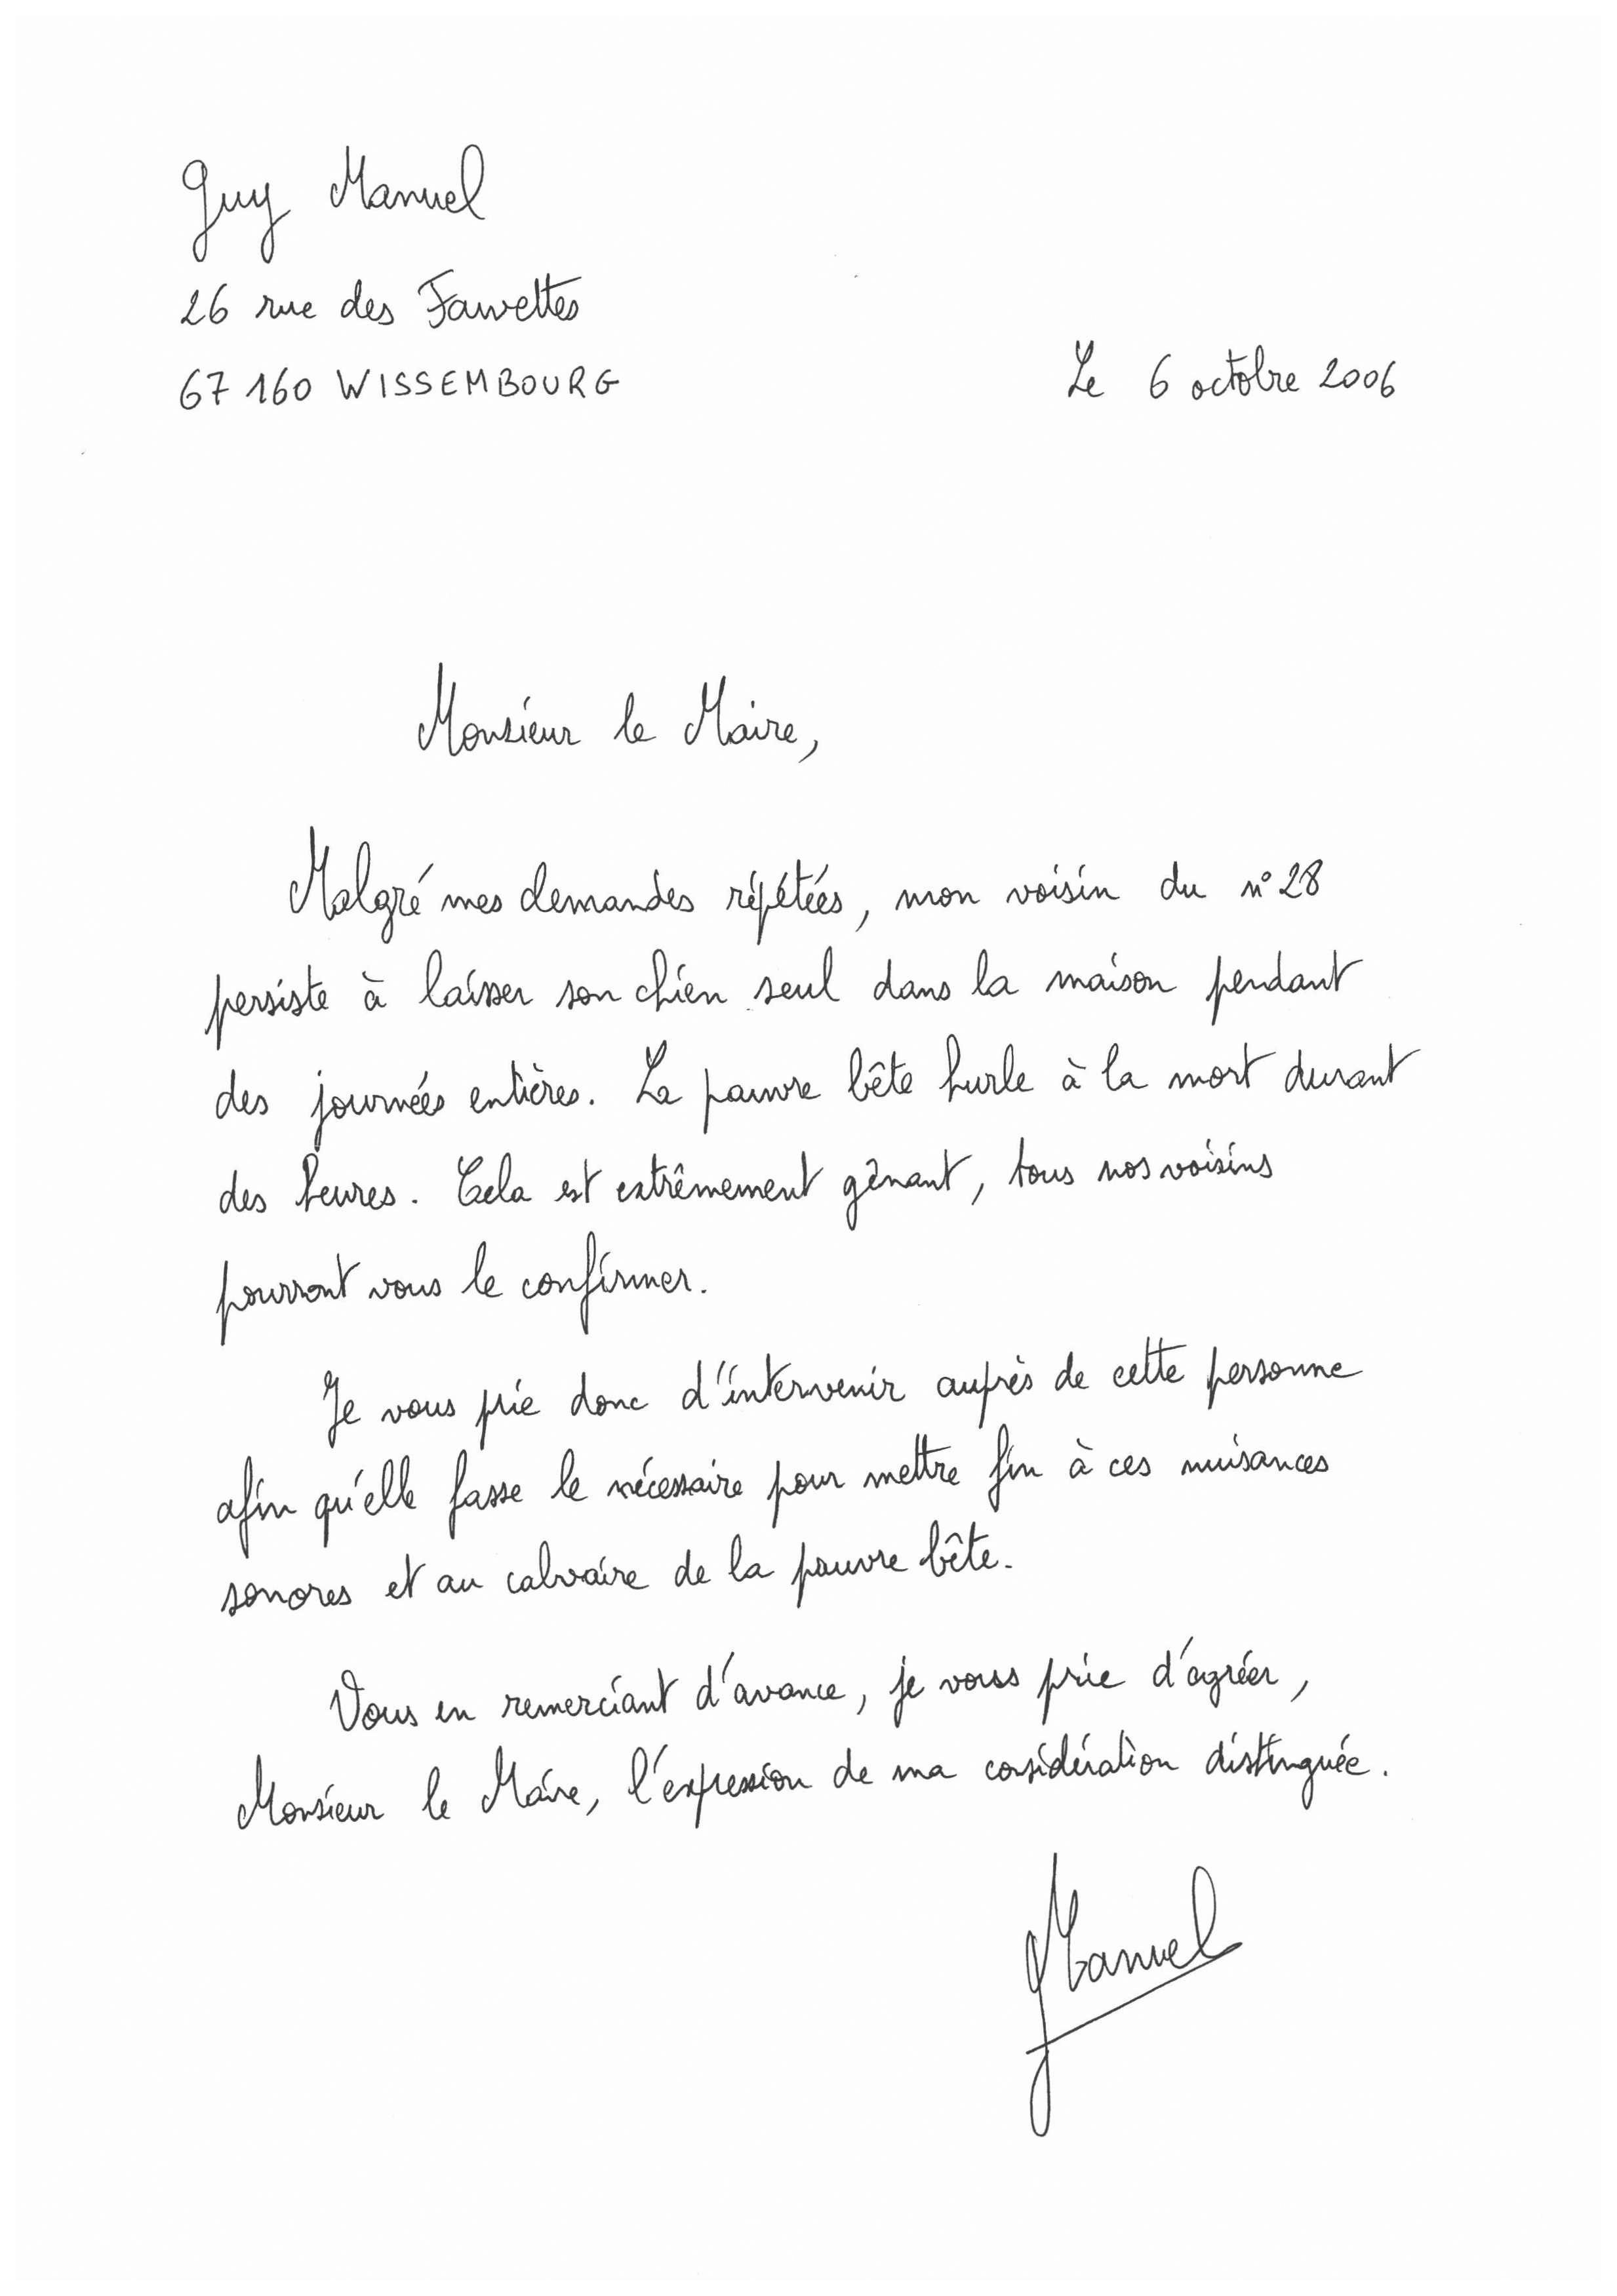 Guy Manuel
26 rue des Fauvettes
67 160 WISSEMBOURG
Le 6 octobre 2006
Monsieur le Maire,
Malgré mes demandes répétées, mon voisin du n° 28
persiste à laisser son chien seul dans la maison pendant
des journées entières. La pauvre bête hurle à la mort durant
des heures. Cela est extrêmement gênant, tous nos voisins
pourront vous le confirmer.
Je vous prie donc d'intervenir auprès de cette personne
afin qu'elle fasse le nécessaire pour mettre fin à ces nuisances
sonores et au calvaire de la pauvre bête.
Vous en remerciant d'avance, je vous prie d'agréer,
Monsieur le Maire, l'expression de ma considération distinguée.
Manuel